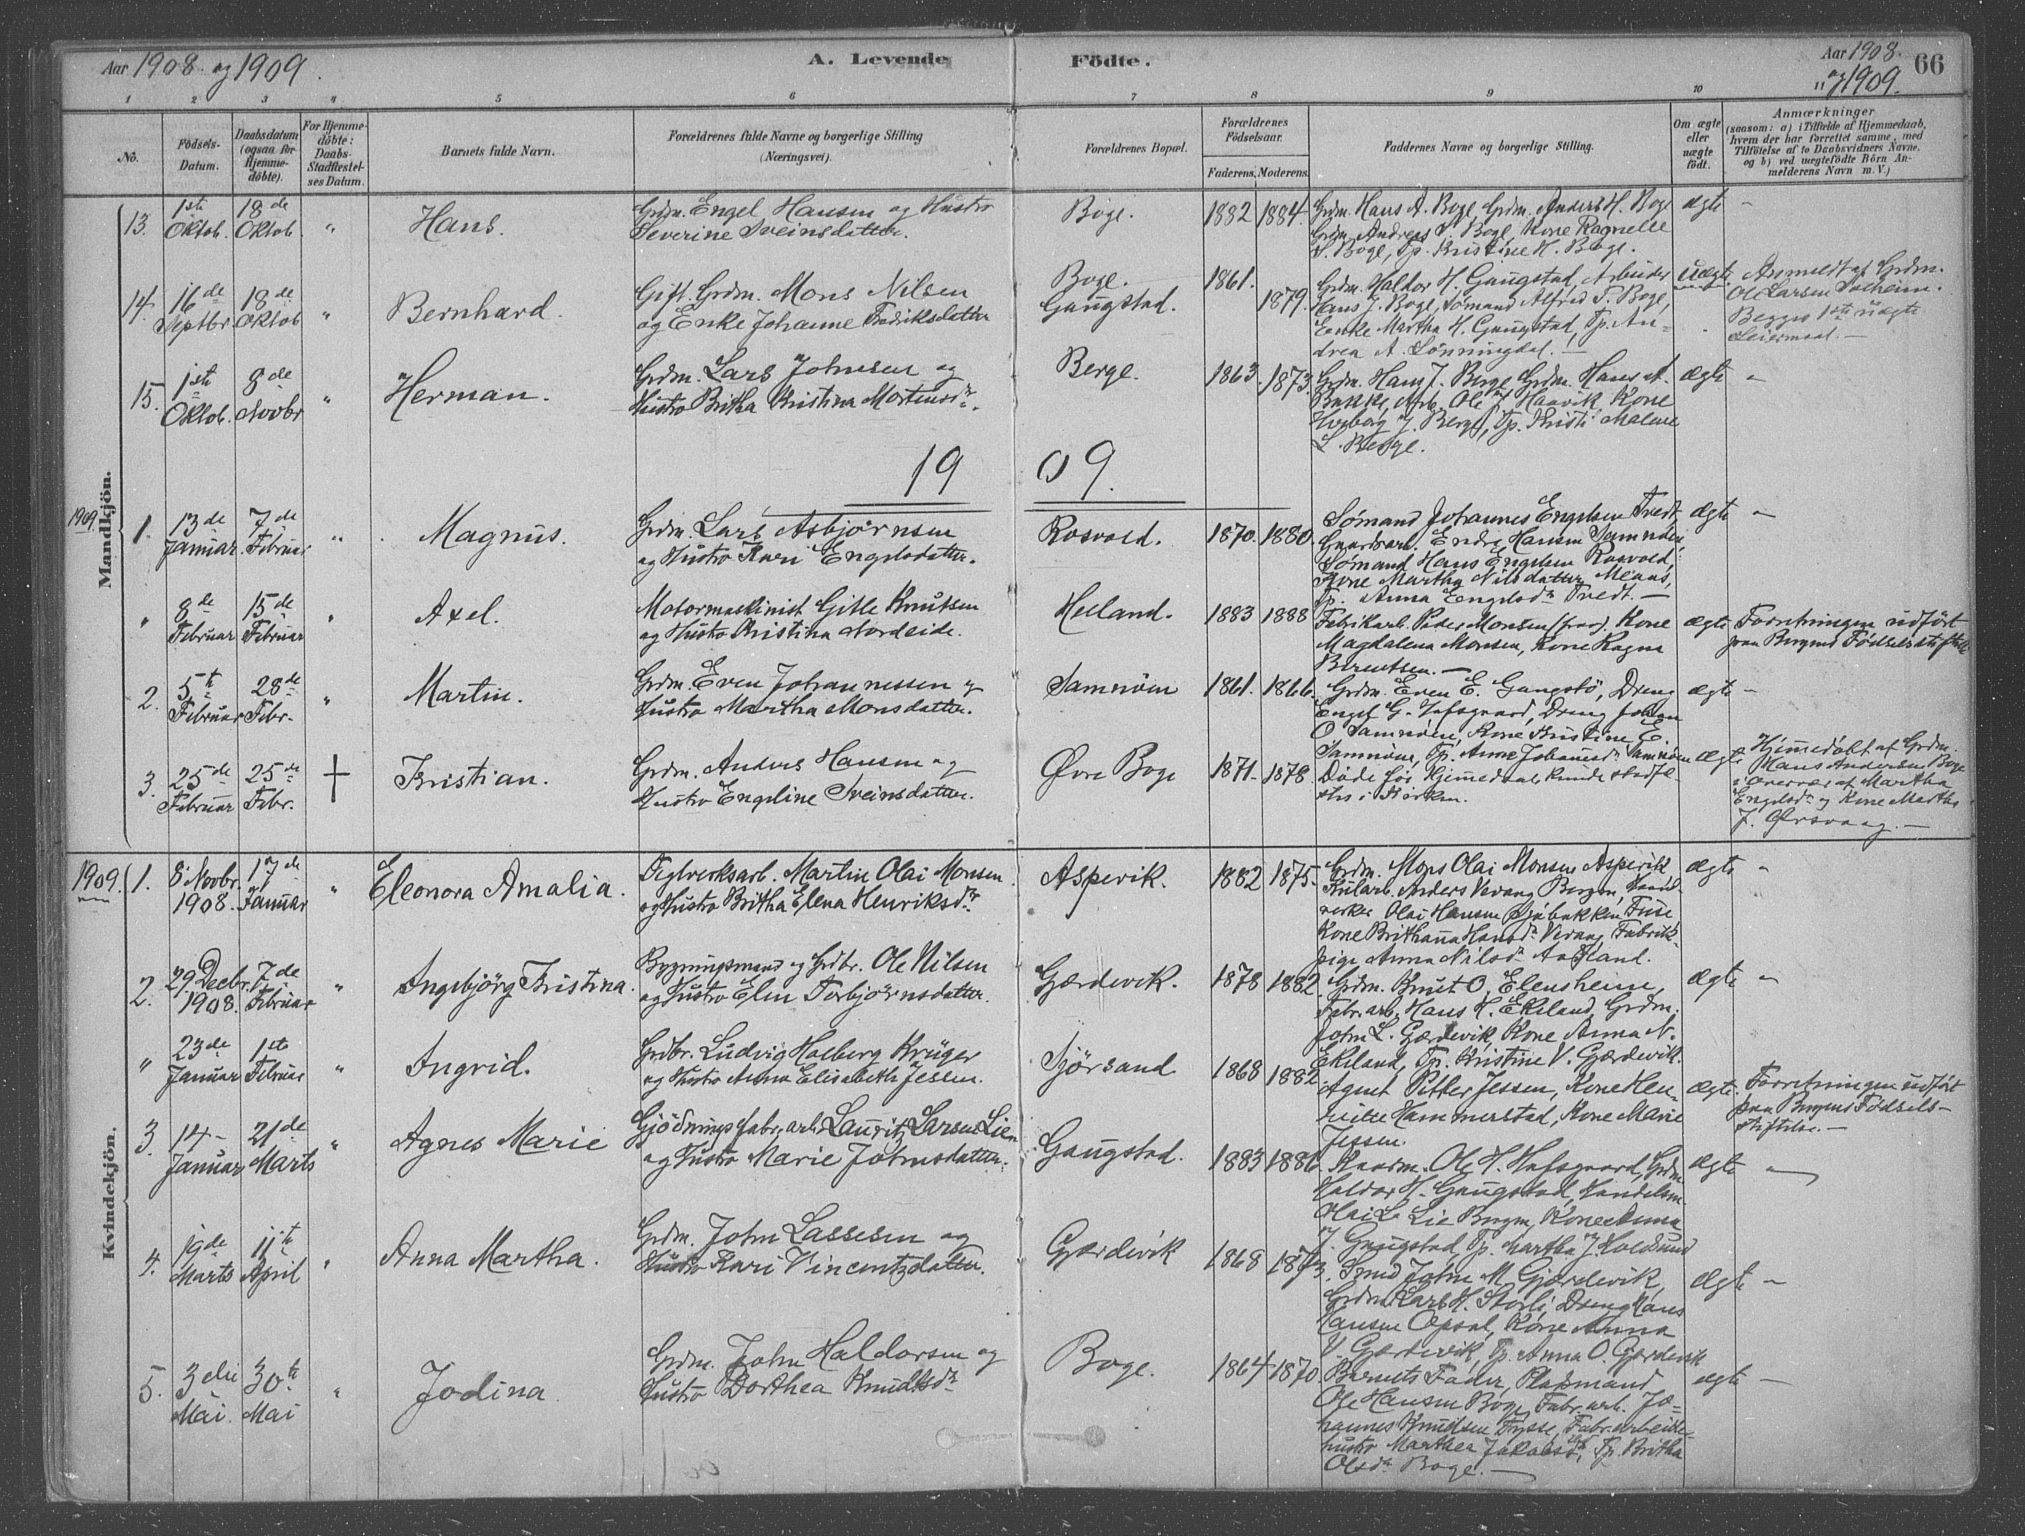 Aar 1908 og 1909.
A. Levende Födte.
Aar 1908 og 1909.
66
1 2 3 4 5 6 7 8 9 10 11
No.
Födsels-
Datum.
Daabsdatum
(ogsaa for
Hjemme-
döbte).
For Hjemme-
döbte:
Daabs-
Stadfæstel-
ses Datum.
Barnets fulde Navn.
Forældrenes fulde Navne og borgerlige Stilling
(Næringsvei).
Forældrenes Bopæl.
Forældrenes
Födselsaar.
Faderens. Moderens.
Faddernes Navne og borgerlige Stilling.
Om ægte
eller
uægte
födt.
Anmærkninger
(saasom: a) i Tilfælde af Hjemmedaab,
hvem der har forrettet samme, med
Tilföielse af to Daabsvidners Navne,
og b) ved uægtefödte Börn An-
melderens Navn m. V.)
Mandkjön.
13. 1ste Oktob. 18de Oktob. " Hans.
Grdm. Engel Hansen og Hustro
Severine Sveinsdatter.
Boge. 1882 1884.
Grdm. Hans A. Boge, Grdm. Anders H. Boge
Grdm. Andreas S. Boge, Kone Ragnelle
S. Boge, Tp. Kristine H. Boge.
ægte "
14. 16de Septbr. 18de Oktob. " Bernhard.
Gift. Grdm. Mons Nilsen
og Enke Johanne Fredriksdatter
Boge.
Gaugstad.
1861. 1879.
Grdm. Haldor H. Gaugstad, Arbeider
Hans J. Boge, Sømand Alfred S. Boge,
Enke Martha H. Gaugstad, Tp. An-
drea A. Lønningdal. —
uægte
Anmeldt af Grdm.
Ole Larsen Solheim.
Begges 1ste uægte
Leiermaal. —
15. 1ste Oktob. 8de Novbr. " Herman.
Grdm. Lars Johnsen og
Hustro Britha Kristina Mortensdr.
Berge. 1863. 1873.
Grdm. Hans J. Berge, Grdm. Hans A.
Bakke, Arb. Ole J. Haavik, Kone
Ingeborg J. Berge, Tp. Kristi Malene
L. Berge.
ægte "
1909.
1909.
1. 13de Januar 7de Februar " Magnus.
Grdm. Lars Asbjørnsen
og Hustro Kari Engelsdatter.
Rosvold. 1870. 1880.
Sømand Johannes Engelsen Tvedt
Gaardsarb. Endre Hansen Samnøen,
Sømand Hans Engelsen Rosvold,
Kone Martha Nilsdatter
Tp. Anna Engelsdr. Tvedt. —
ægte "
" 8de Februar 15de Februar " Axel.
Motormaskinist Gitle Knutsen
og Hustro Kristina Nordeide.
Heiland. 1883 1888
Fabrikarb. Peder Monsen (frav), Kone
Magdalena Monsen, Kone Ragna
Berentsen. —
ægte
Forretningen udført
paa Bergens Fødselsstiftelse
2. 5te Februar 28de Febr. " Martin.
Grdm. Even Johannessen og
Hustro Martha Monsdatter.
Samnøen 1861. 1866.
Grdm. Even E. Gangstø, Dreng
Engel G. Hafsgaard, Dreng Johan
O. Samnøen, Kone Kristine E.
Samnøen, Tp. Anne Johannesdr. Samnøen
ægte "
3. 25de Februar 25de Febr. + Kristian.
Grdm. Anders Hansen og
Hustro Engeline Sveinsdatter.
Øvre Boge 1871. 1878.
Døde før Hjemmedaab kunde stadfæ-
stes i Kirken.
ægte
Hjemmedøbt af Grdm.
Hans Andersen Boge
i Overvær af Martha
Engelsdr. og Kone Martha
J. Ørsvaag. —
Kvindekjön.
1909.
1. 8 Novbr. 1908. 17de Januar " Eleonora Amalia.
Teglverksarb. Martin Olai Monsen
og Hustro Britha Elena Henriksdr.
Aspevik. 1882 1875.
Grdm. Mons Olai Monsen Aspevik
Kularb. Anders Vevang Bergen, Haand-
verker Olai Hansen Sjøbakken Fuse,
Kone Brithanna Hansdr. Vevang, Fabrik-
pige Anna Nilsdr. Aadland.
ægte "
2. 29 Decbr. 1908. 7de Februar " Ingebjörg Kristina.
Bygningsmand og Grdbr. Ole Nilsen
og Hustro Elin Torbjørnsdatter.
Gjærdevik. 1878 1882.
Grdm. Knut O. Elensheim,
Fabr.arb. Hans H. Ekeland, Grdm.
John L. Gjærdevik, Kone Anna N.
Ekeland, Tp. Kristine V. Gjærdevik.
ægte "
" 23de Januar 1ste Februar " Ingrid.
Grdbr. Ludvig Holberg Krüger
og Hustro Anna Elisabeth Jessen.
Sjørsand 1868 1882.
Agent Petter Jessen, Kone Hen-
riette Hammerstad, Kone Marie
Jessen.
ægte.
Forretningen udført
paa Bergens Fødsels-
stiftelse. —
3. 14– Januar 21de Marts " Agnes Marie
Gjødningsfabr.arb. Lauritz Larsen Lien
og Hustro Marie Johnsdatter.
Gaugstad. 1883 1886.
Kaardm. Ole H. Hafsgaard, Grdm.
Haldor H. Gaugstad, Handelsm.
Olai L. Lie Bergen, Kone Anna
J. Gaugstad, Tp. Martha J. Koldsund
ægte "
4. 19de Marts 11te April " Anna Martha.
Grdm. John Lassesen og
Hustro Kari Vincentzdatter.
Gjærdevik 1868 1873.
Smed John M. Gjærdevik,
Grdm. Lars H. Storli, Dreng Hans
Hansen Opsal, Kone Anna
V. Gjærdevik, Tp. Anna O. Gjærdevik
ægte "
5. 3die Mai. 30te Mai " Jodina.
Grdm. John Haldorsen og
Hustro Dorthea Knudsdr.
Boge. 1864 1870.
Barnets Fader, Pladsmand
Ole Hansen Boge, Fabr.arb. Jo-
hannes Knudsen Tysse, Fabr.arbeider-
hustro Marthea Jakobsdr., Tp. Britha
Olsdr. Boge. —
ægte "